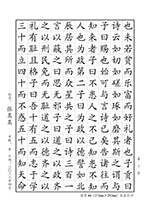 也未若贫而乐富而好礼者也子贡曰
诗云如切如磋如琢如磨其斯之谓与
子曰赐也始可与言诗已矣告诸往而
知来者子曰不患人之不己知患不知
人也为政第二子曰为政以德譬如北
辰居其所而众星共之子曰诗三百一
言以蔽之曰思无邪子曰道之以政齐
之以刑民免而无耻道之以德齐之以
礼有耻且格子曰吾十有五而志于学
三十而立四十而不惑五十而知天命